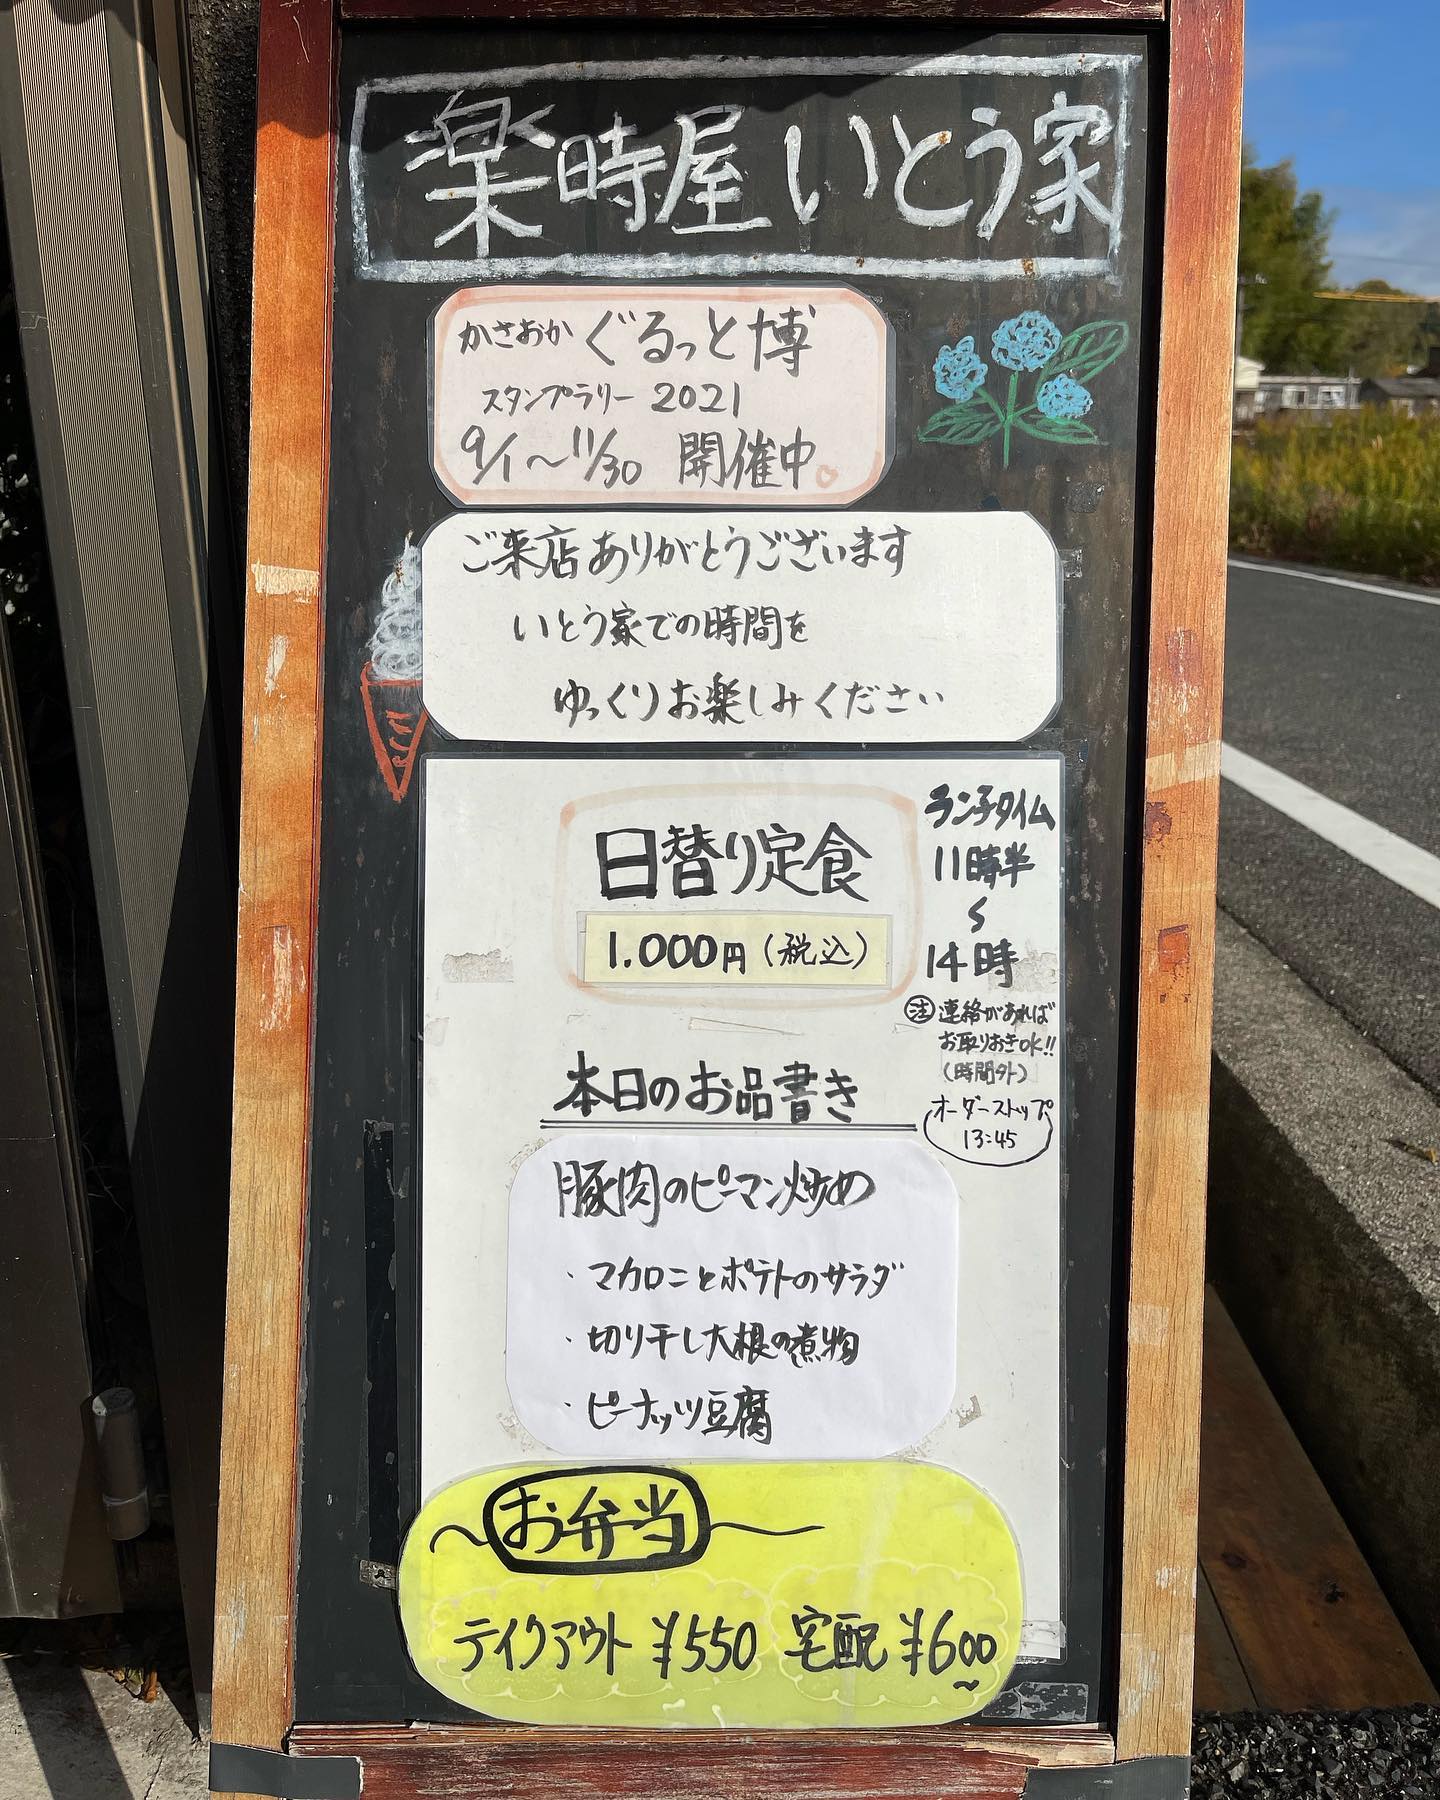 楽時屋いとう家
かさおか ぐるっと博
スタンプラリー 2021
9/1〜11/30 開催中。
ご来店ありがとうございます
いとう家での時間を
ゆっくりお楽しみください
日替り定食
1.000円(税込)
ランチタイム
11時半
〜
14時
注 連絡があれば
お取りおきOK!!
(時間外)
オーダーストップ
13:45
本日のお品書き
豚肉のピーマン炒め
・マカロニとポテトのサラダ
・切り干し大根の煮物
・ピーナッツ豆腐
〜お弁当〜
テイクアウト ¥550 宅配 ¥600〜